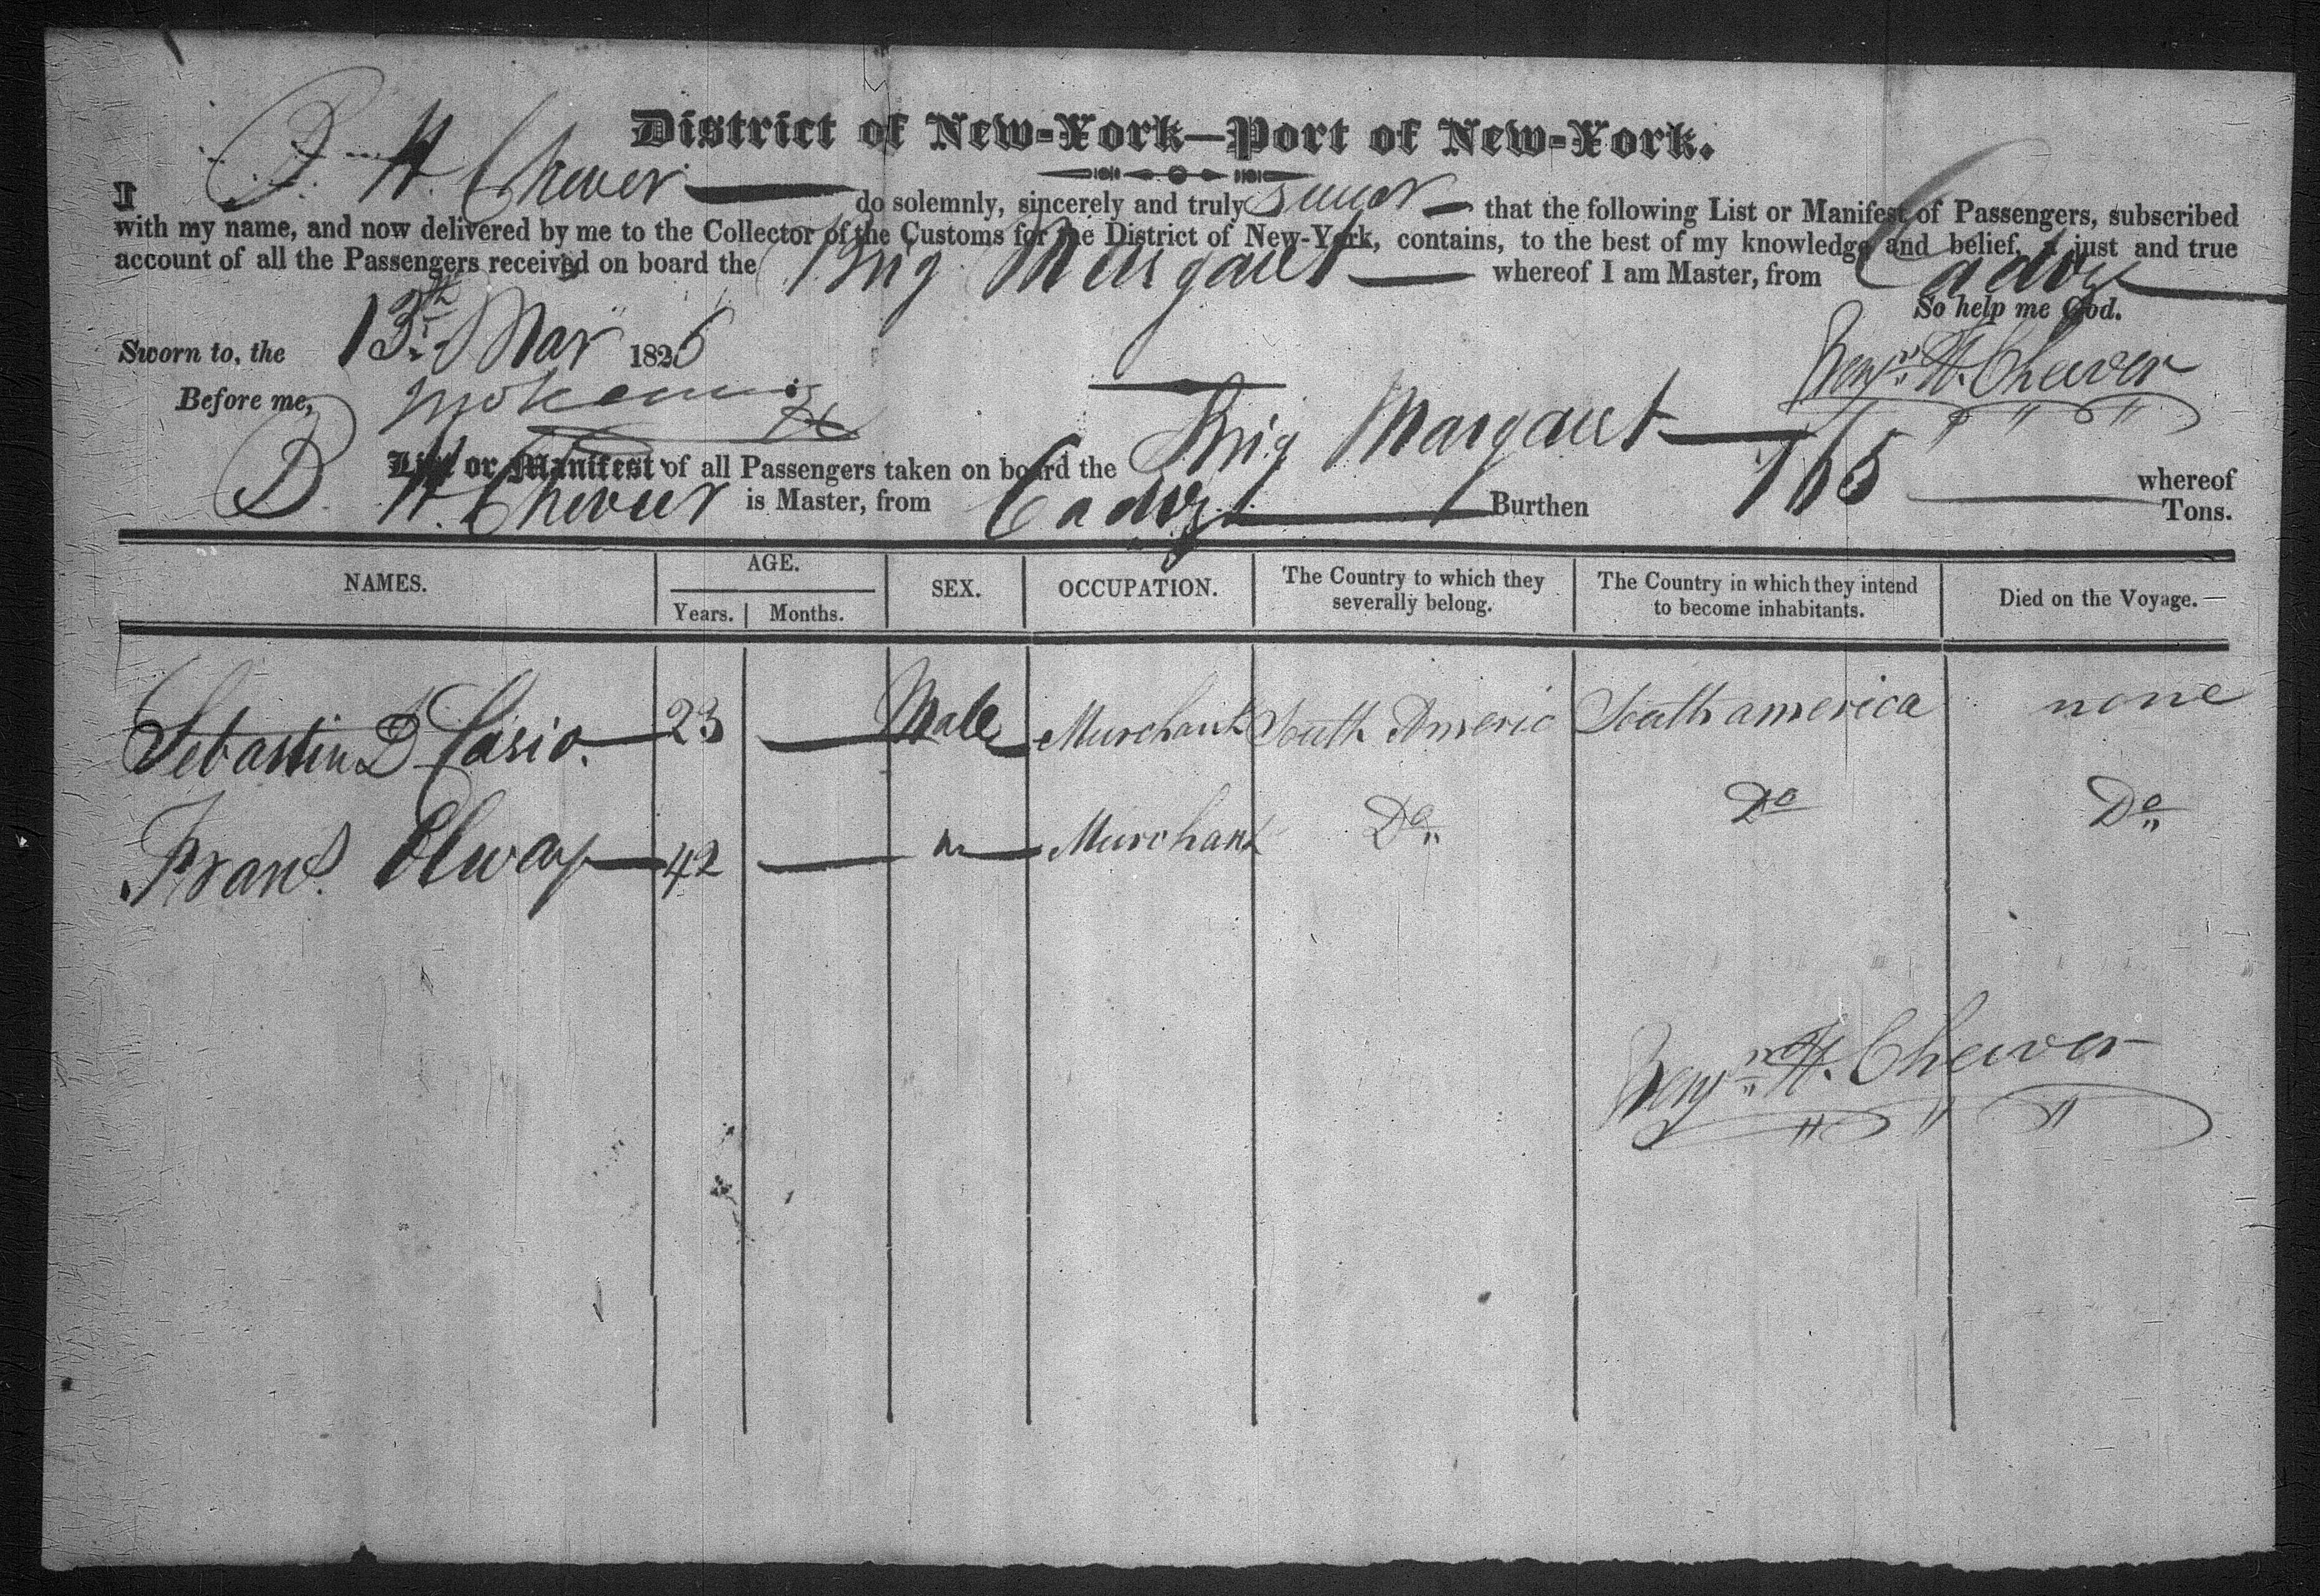 District of New-York—Port of New-York.
I B. H. Cheever do solemnly, sincerely and truly swear that the following List or Manifest of Passengers, subscribed
with my name, and now delivered by me to the Collector of the Customs for the District of New-York, contains, to the best of my knowledge and belief, a just and true
account of all the Passengers received on board the Brig Margaret whereof I am Master, from Cadiz
So help me God.
Sworn to, the 13th Mar 1826
Benjn. H. Cheever
Before me,
List or Manifest of all Passengers taken on board the Brig Margaret whereof
B. H. Cheever is Master, from Cadiz Burthen 165 Tons.
NAMES. AGE. Years. Months. SEX. OCCUPATION. The Country to which they severally belong. The Country in which they intend to become inhabitants. Died on the Voyage.
Sebastin D Casio. 23 Male Murchant South Americ South america none
Frans. 42 m Murchant Do Do Do
Benjn. H. Cheever